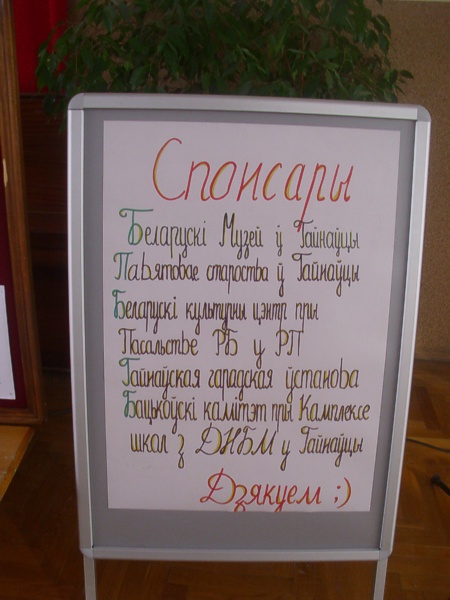 Спонсары
Беларускі Музей ў Гайнаўцы
Павятовае староства ў Гайнаўцы
Беларускі культурны цэнтр пры
Пасальстве РБ у РП
Гайнаўская гарадская ўстанова
Бацькоўскі камітэт пры Комплексе
школ з ДНБМ у Гайнаўцы
Дзякуем ;)